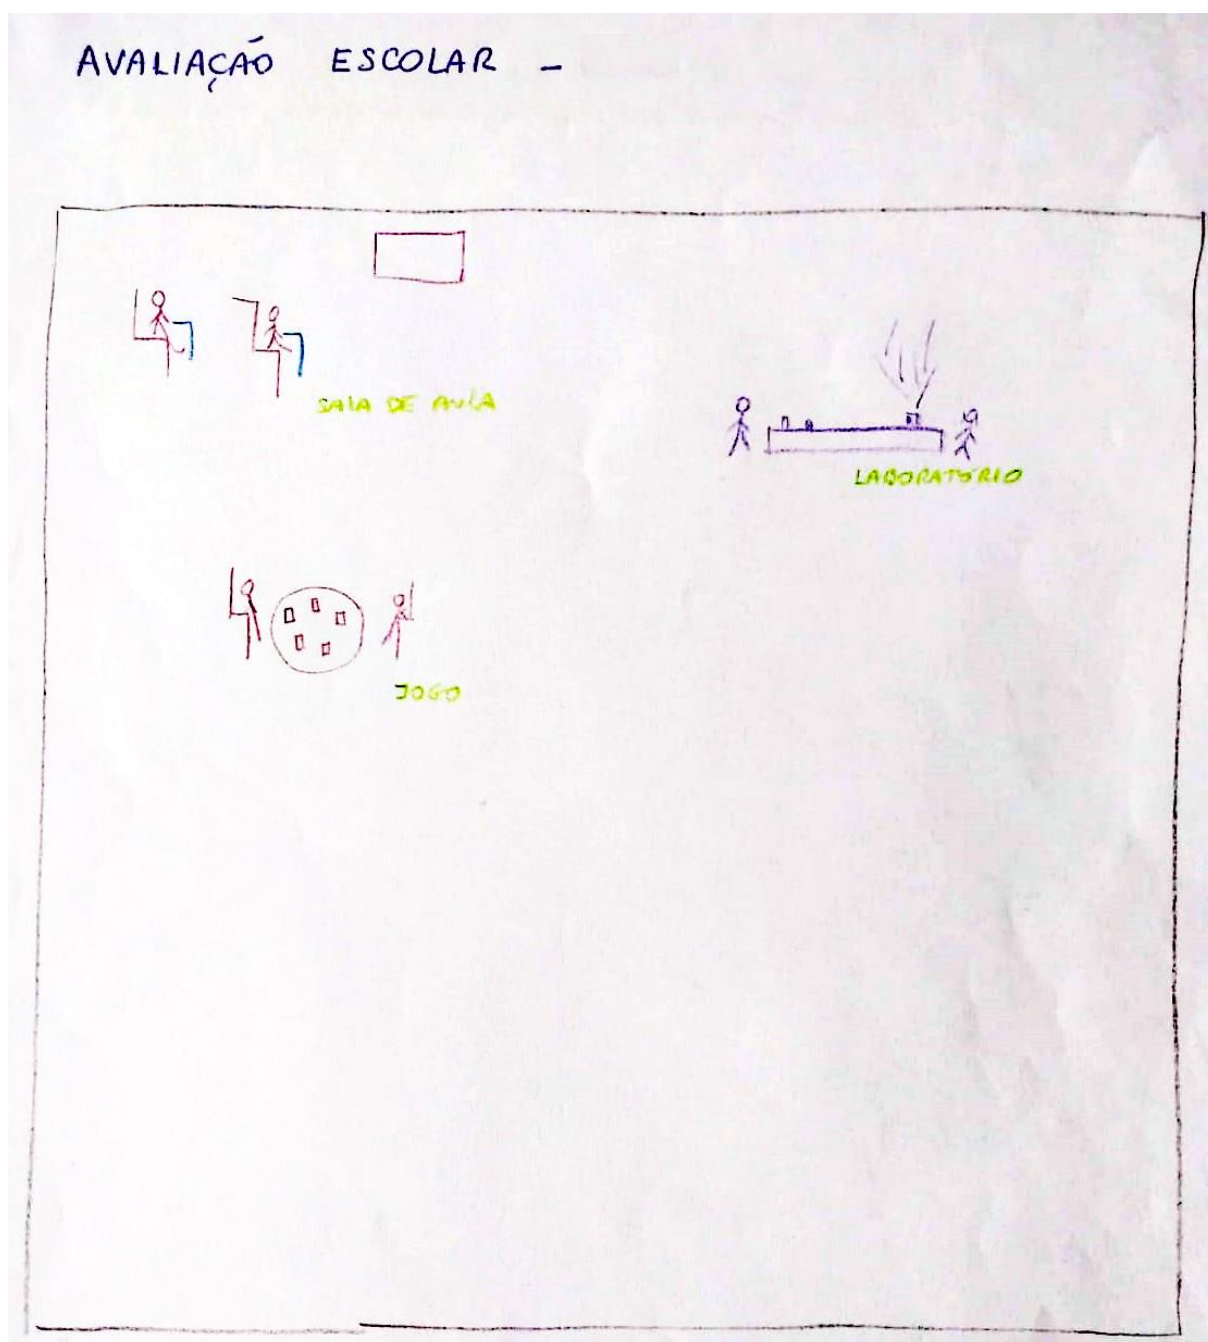 AVALIAÇÃO ESCOLAR -
SALA DE AULA
LABORATÓRIO
JOGO